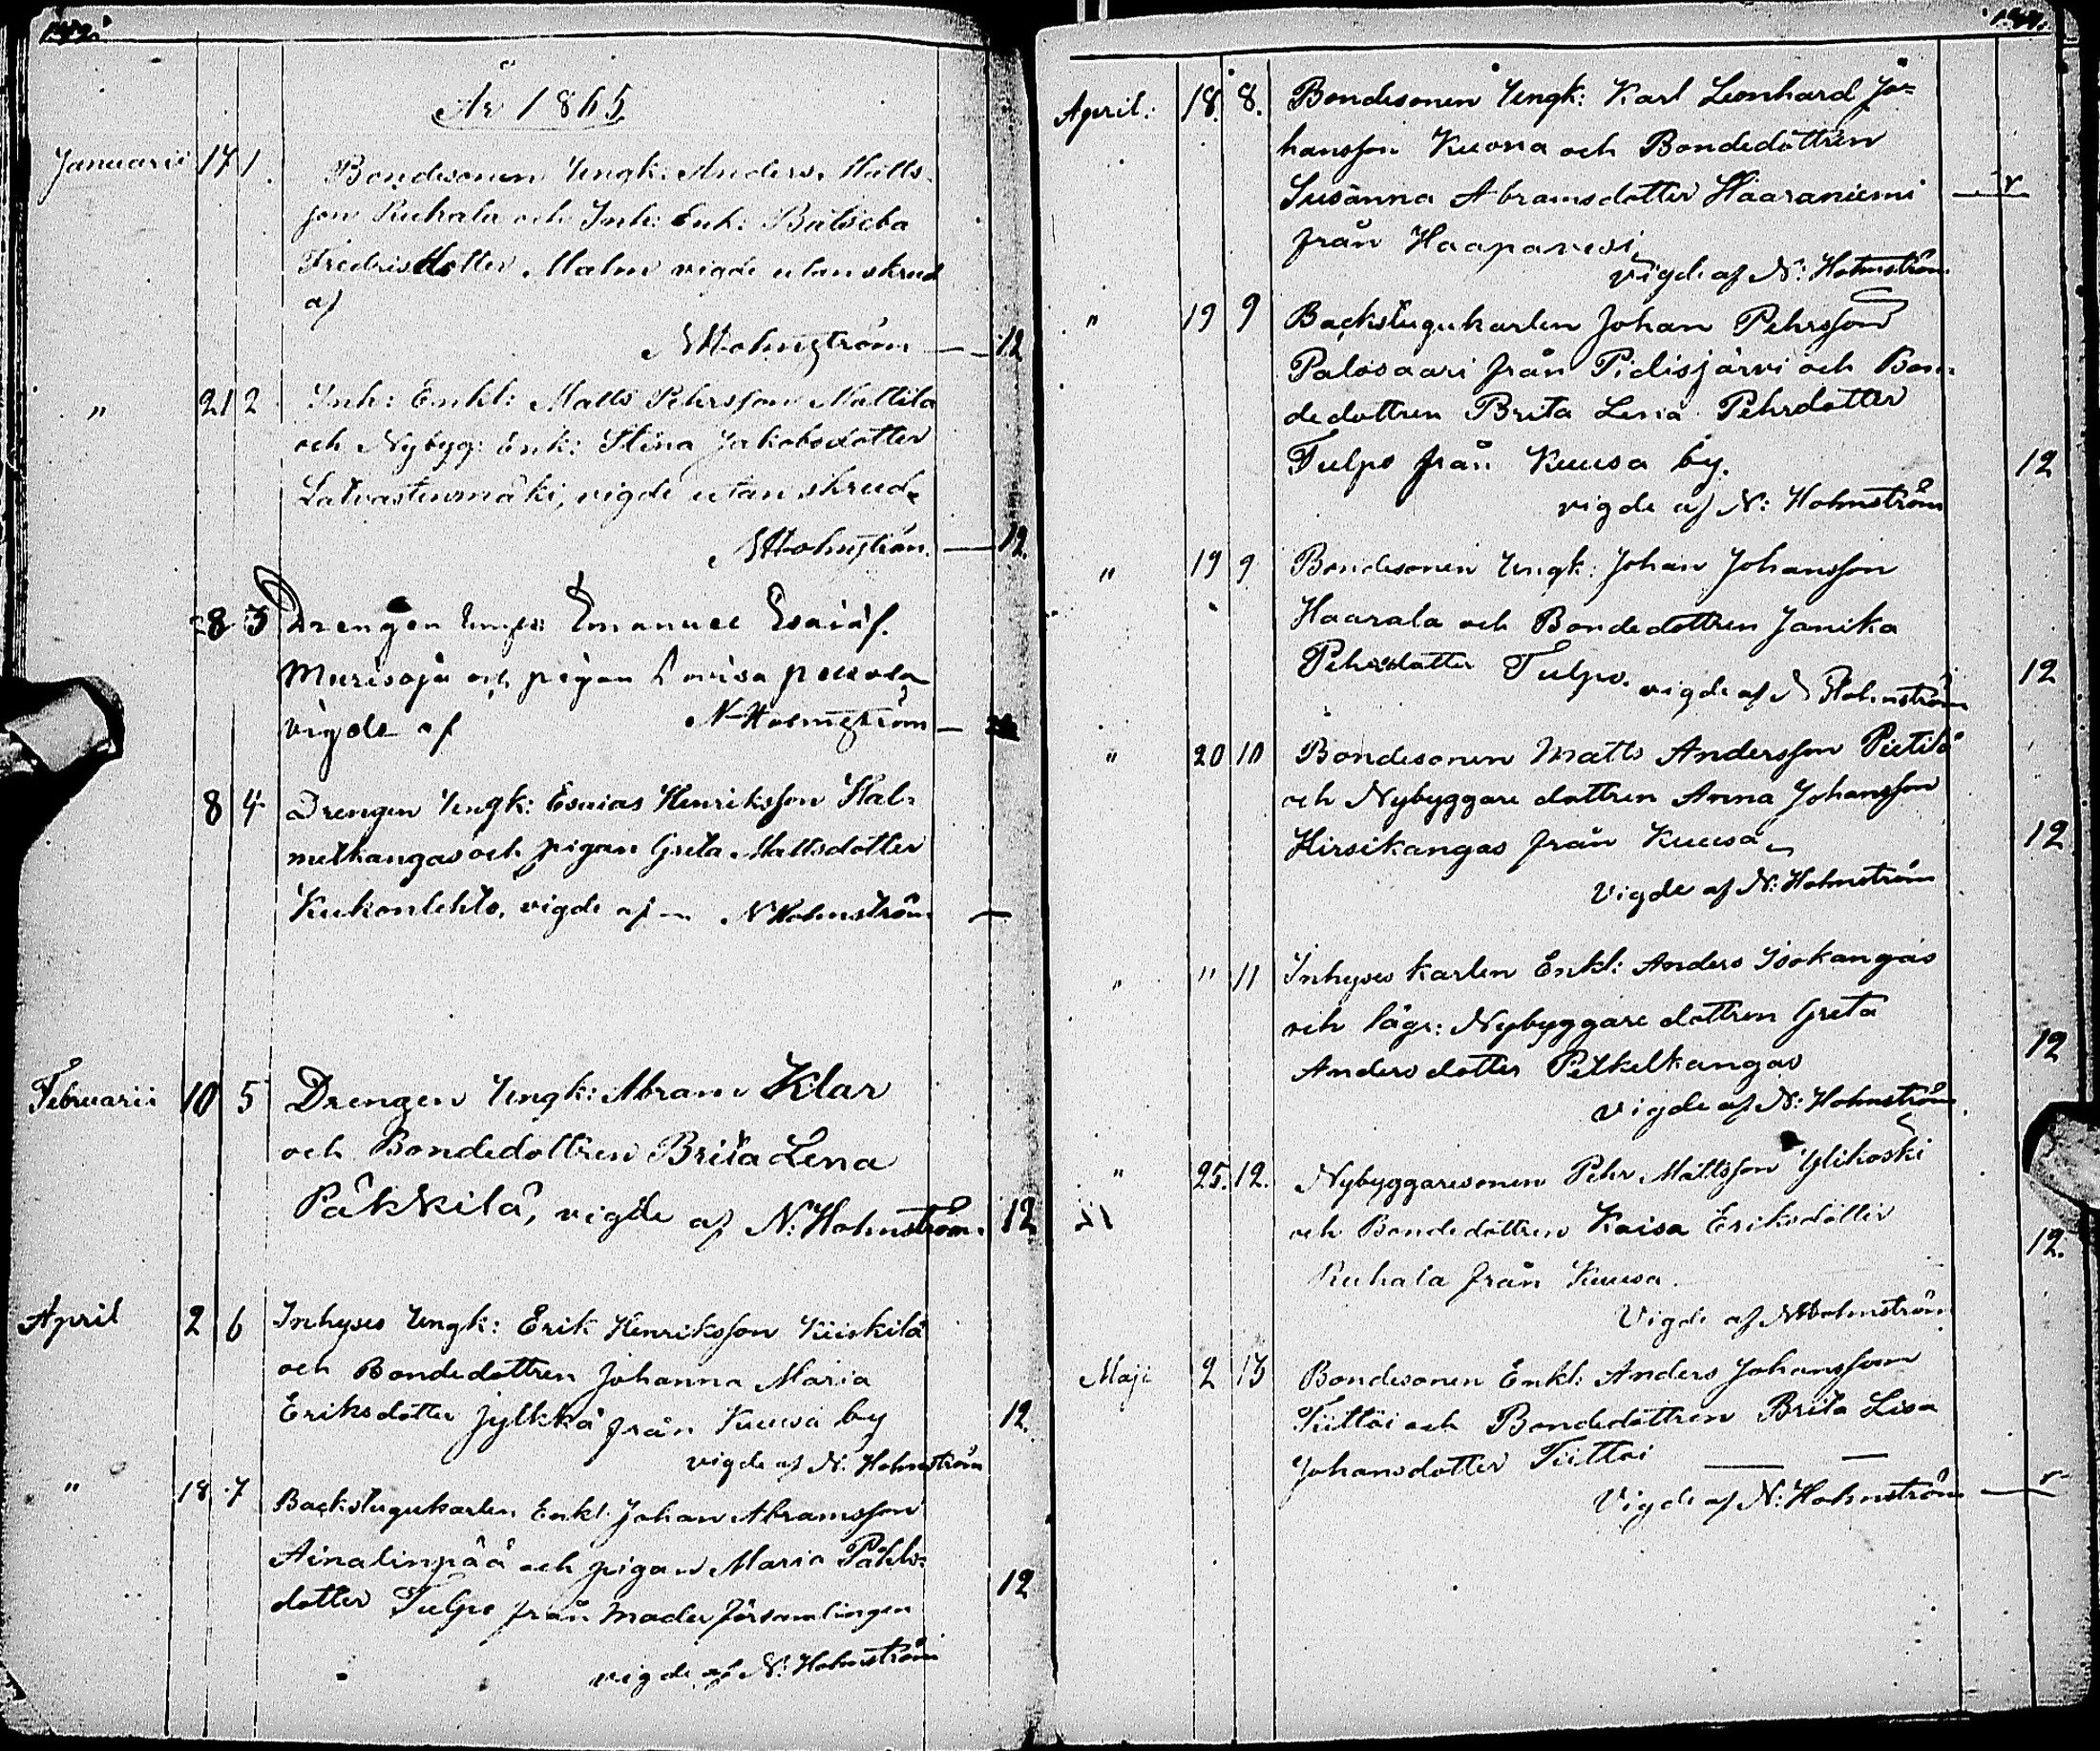 År 1865
Januarii 17 1. Bondesonen Ungk: Anders Matts-
son Ruhala och Inh: Enk: Batseba
Fredrisdotter Malm vigde utan skrud
af
N Holmström — 12
" 21 2 Inh: Enkl: Matts Pehrsson Mattila
och Nybyg: Enk: Stina Jakobsdotter
Latvastenmäki, vigde utan skrud.
N Holmström. — 12.
28 3 Drengen Emanuel Esaiass.
Murisoja och pigan Lovisa
vigde af N Holmström —
8 4 Drengen Ungk: Esaias Henriksson Hal-
metkangas och pigan Greta Mattsdotter
Kukonlehto, vigde af — N Holmström —
Februarii 10 5 Drengen Ungk: Abram Klar
och Bondedottren Brita Lena
Päkkilä, vigde af N: Holmström. 12
April 2 6 Inhyses Ungk: Erik Henriksson Kiiskilä
och Bondedottren Johanna Maria
Eriksdotter Jylkkä från Kuusa by 12.
vigde af N. Holmström
" 18 7 Backstugukarlen Enkl. Johan Abramsson
Ainalinpää och pigan Maria Påhls-
dotter Tulpo från Moderförsamlingen 12
vigde af N: Holmström
April: 18. 8. Bondesonen Ungk: Karl Leonhard Jo-
hansson Kuona och Bondedottren
Susanna Abramsdotter Haaraniemi — r
från Haapavesi,
vigde af N: Holmström
" 19 9 Backstugukarlen Johan Pehrsson
Palosaari från Pidisjärvi och Bon-
dedottren Brita Lena Pehrdotter
Tulpo från Kuusa by. 12
vigde af N: Holmström
" 19 9 Bondesonen Ungk: Johan Johansson
Haarala och Bondedottren Janika
Pehrsdotter Tulpo. vigde af N Holmström 12
" 20 10 Bondesonen Matts Andersson Pietilä
och Nybyggare dottren Anna Johansson
Hirsikangas från Kuusa 12
Vigde af N: Holmström
" " 11 Inhyses karlen Enkl: Anders Isokangas
och lägr: Nybyggare dottren Greta
Andersdotter Petkelkangas 12
vigde af N: Holmström
" 25. 12. Nybyggaresonen Pehr Mattsson Ylikoski
och Bondedottren Kaisa Eriksdotter
Ruhala från Kuusa. 12.
Vigde af N Holmström
Maji 2 13 Bondesonen Enkl: Anders Johansson
Tiittoi och Bondedottren Brita Lisa
Johansdotter Tiittoi — —
Vigde af N: Holmström — r